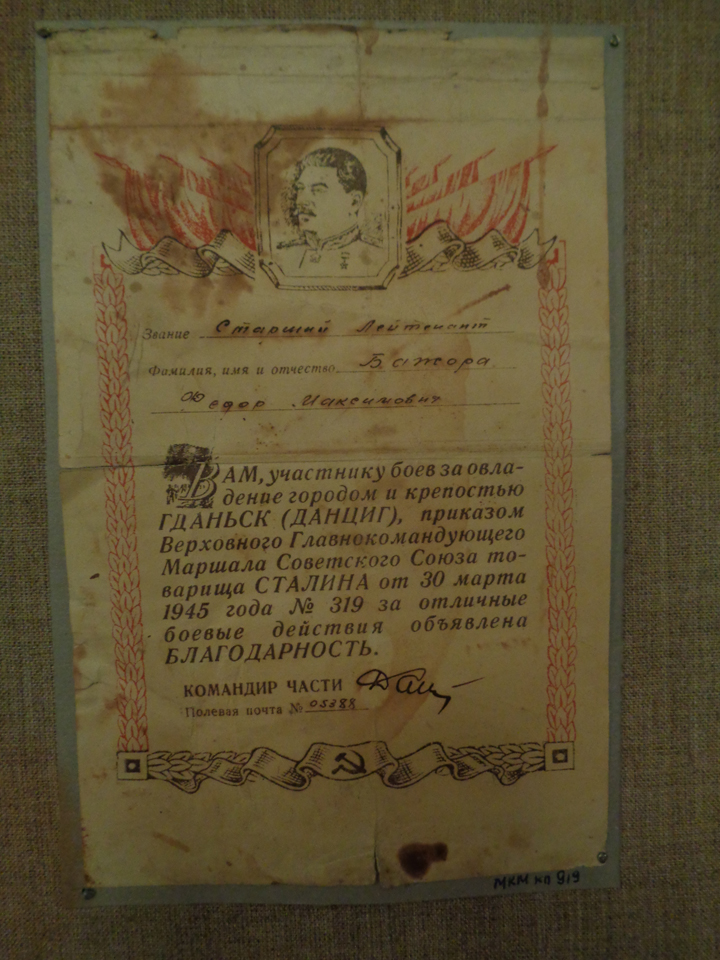 Звание Старший Лейтенант
Фамилия, имя и отчество Бажора
Федор Максимович
ВАМ, участнику боев за овла-
дение городом и крепостью
ГДАНЬСК (ДАНЦИГ), приказом
Верховного Главнокомандующего
Маршала Советского Союза то-
варища СТАЛИНА от 30 марта
1945 года № 319 за отличные
боевые действия объявлена
БЛАГОДАРНОСТЬ.
КОМАНДИР ЧАСТИ
Полевая почта № 05388
МКМ кп 919